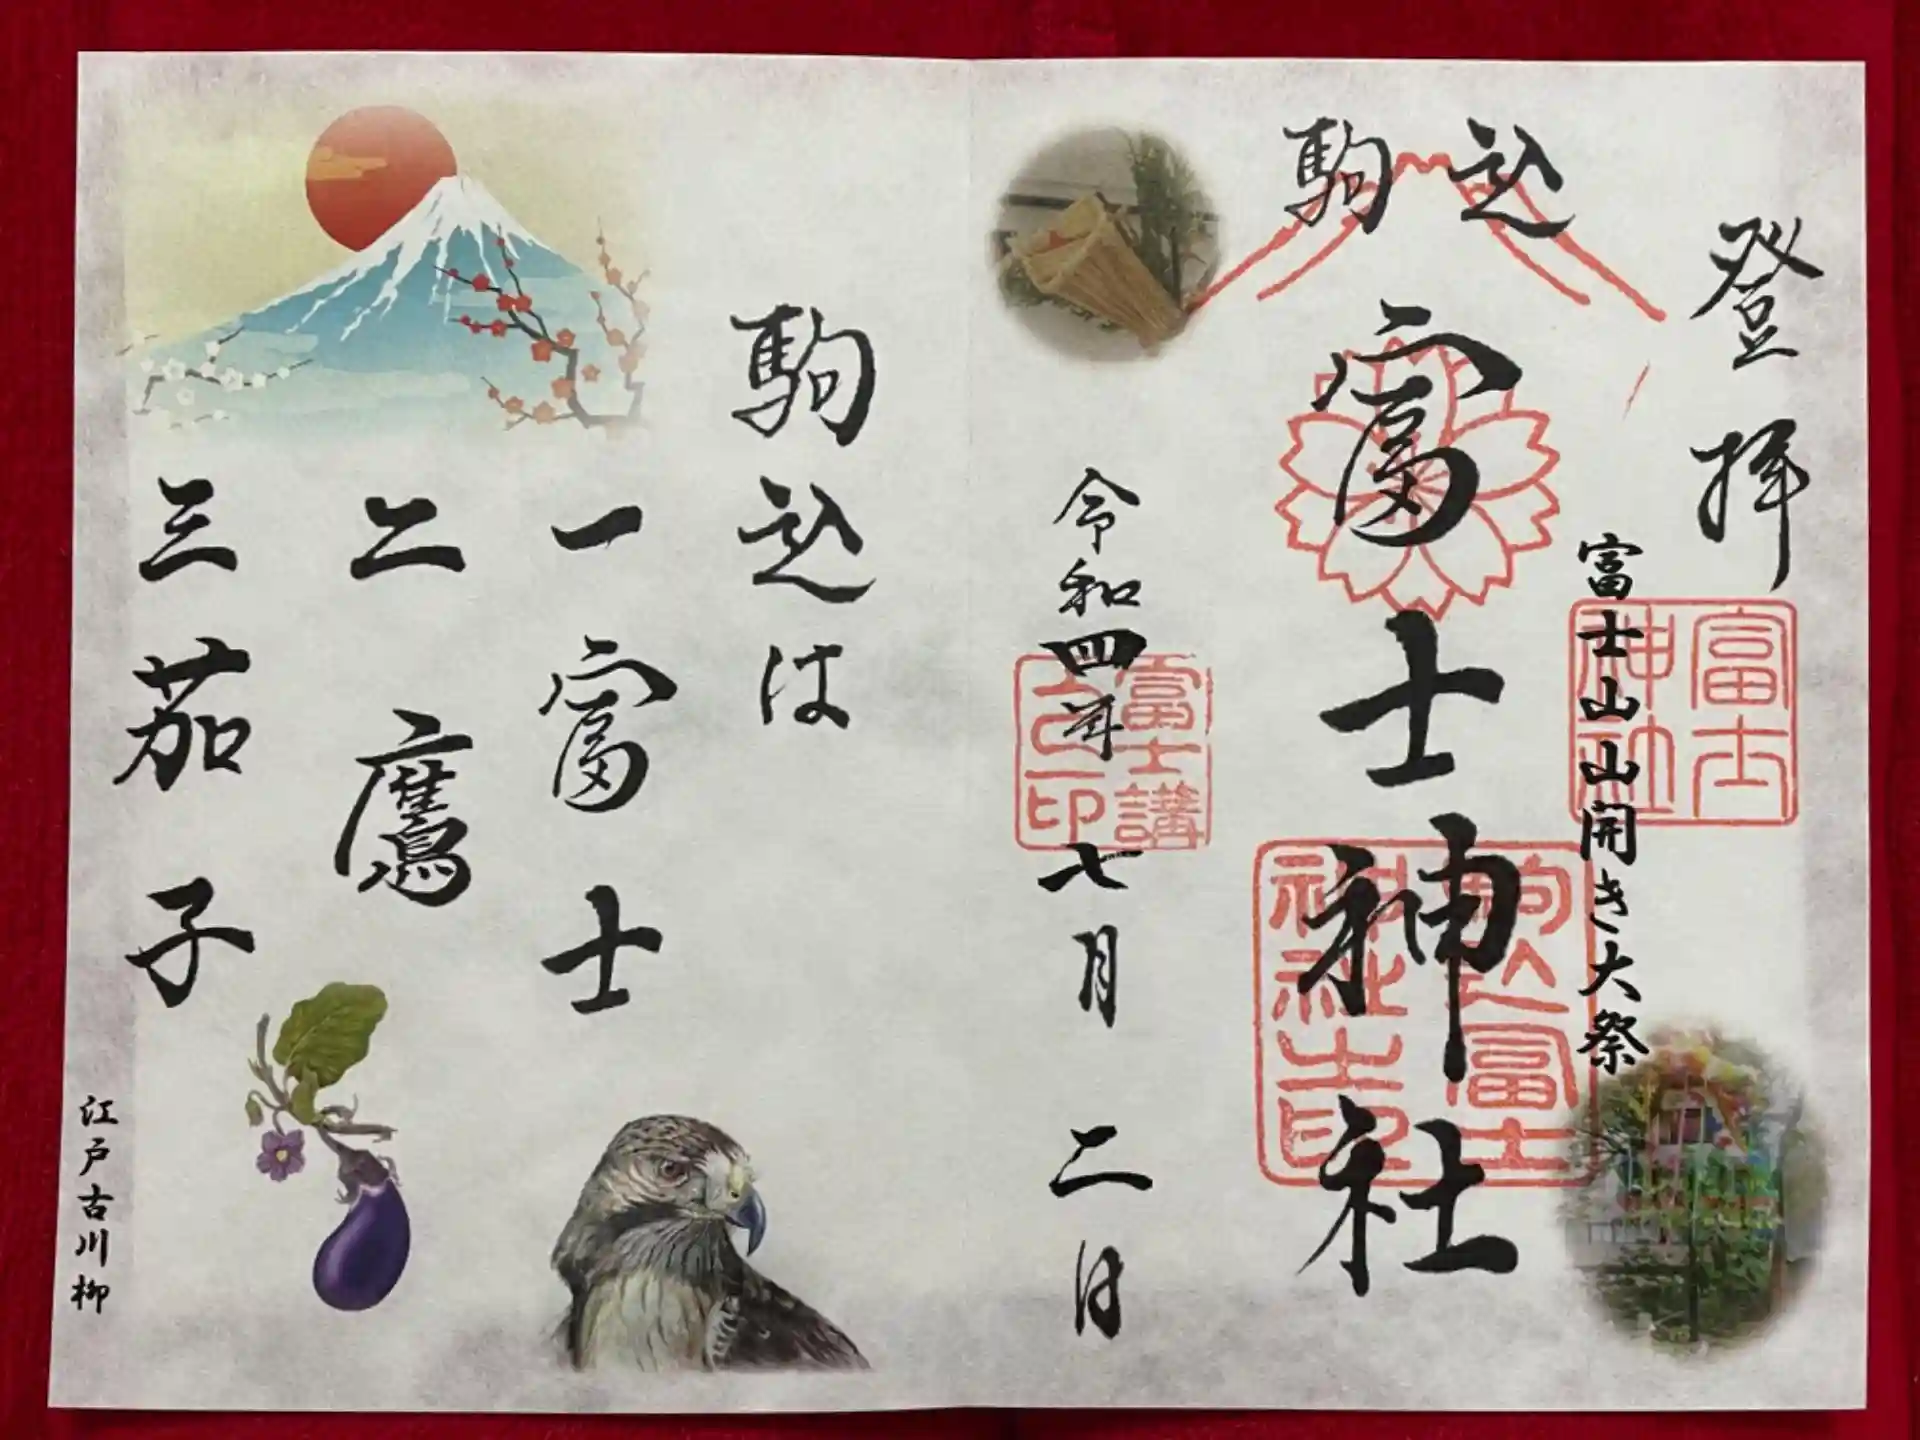 登拝
富士山山開き大祭
駒込
富士神社
令和四年七月二日
駒込は
一富士
二鷹
三茄子
江戸古川柳
富士
神社
駒込富士
神社之印
富士講
之印